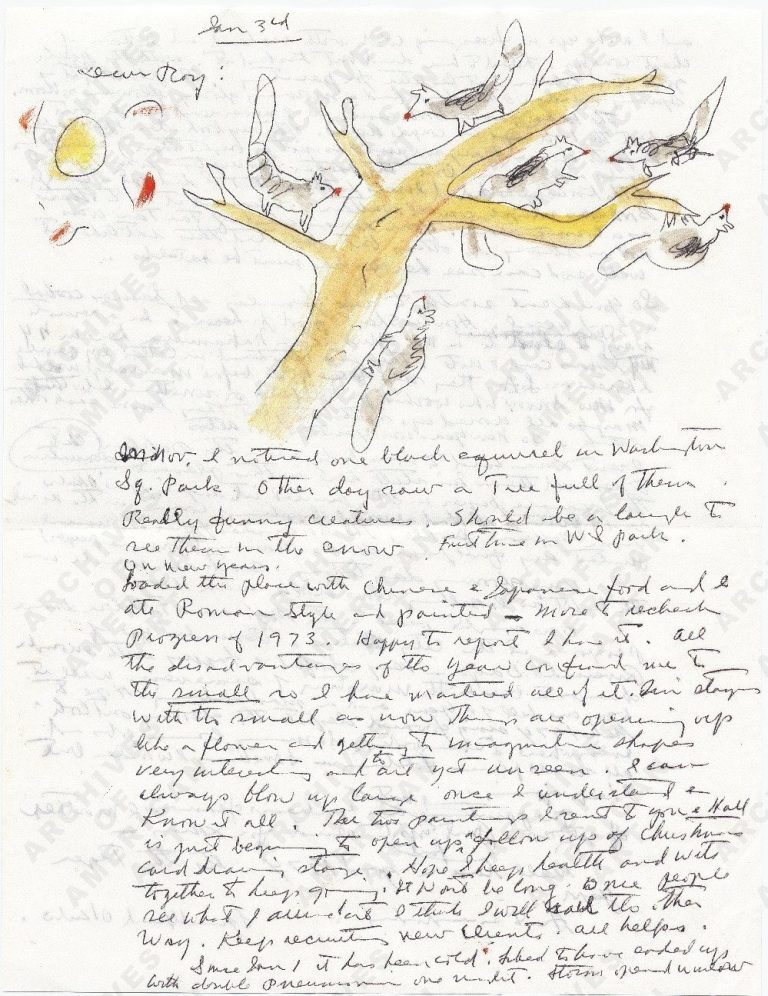 Jan 3rd
Dear Roy:
In Nov. I noticed one black squirrel in Washington
Sq. Park Other day saw a Tree full of them.
Really funny creatures. Should be a laugh to
see them in the snow. First time in W S Park.
On New Years.
Loaded the place with Chinese & Japanese food and I
ate Roman Style and painted – More to recheck
Progress of 1973. Happy to report I have it. All
the disadvantages of the Year confined me to
the small so I have mastered all of it. I'm
with the small as now Things are opening up
like a flower and getting to imaginative shapes
very interesting and to are yet unseen. I can
always blow up large once I understand &
Know it all. The two paintings I sent to you & Hall
is just beginning to open up a follow up of Christmas
card drawing stage. Hope I keep health and wits
together to keep going. It won't be long. Once people
see what I I think I will the other
Way. Keep recruiting new Clients. all helps.
Since Jan 1 it has been cold. to have ended up
with double Pneumonia one night. Storm opened window
ARCHIVES OF AMERICAN ART